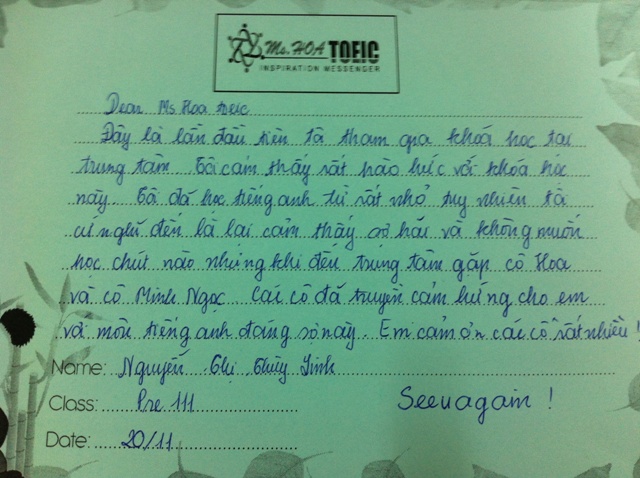 Ms. HOA TOEIC
INSPIRATION MESSENGER
Dear Ms Hoa toeic
Đây là lần đầu tiên tôi tham gia khoá học tại
trung tâm. Tôi cảm thấy rất hào hức với khóa học
này. Tôi đã học tiếng anh từ rất nhỏ tuy nhiên tôi
cứ nghĩ đến là lại cảm thấy sợ hãi và không muốn
học chút nào nhưng khi đến trung tâm gặp cô Hoa
và cô Minh Ngọc. Các cô đã truyền cảm hứng cho em
với môn tiếng anh đáng sợ này. Em cảm ơn các cô rất nhiều!
Name: Nguyễn Thị Thùy Linh
Class: Pre 111
See u again!
Date: 20/11